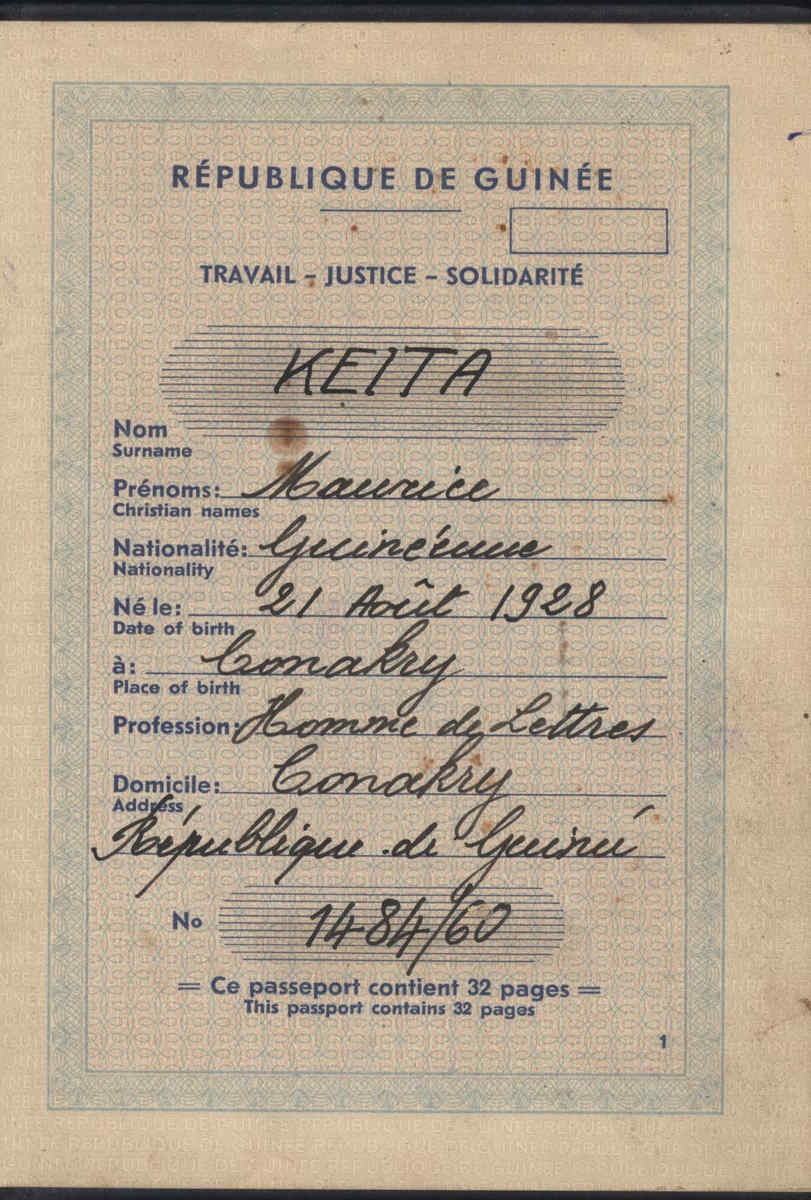 RÉPUBLIQUE DE GUINÉE
TRAVAIL – JUSTICE – SOLIDARITÉ
KEITA
Nom
Surname
Prénoms: Maurice
Christian names
Nationalité: Guinéenne
Nationality
Né le: 21 Août 1928
Date of birth
à: Conakry
Place of birth
Profession: Homme de Lettres
Domicile: Conakry
Address
République de Guinée
No 1484/60
= Ce passeport contient 32 pages =
This passport contains 32 pages
1